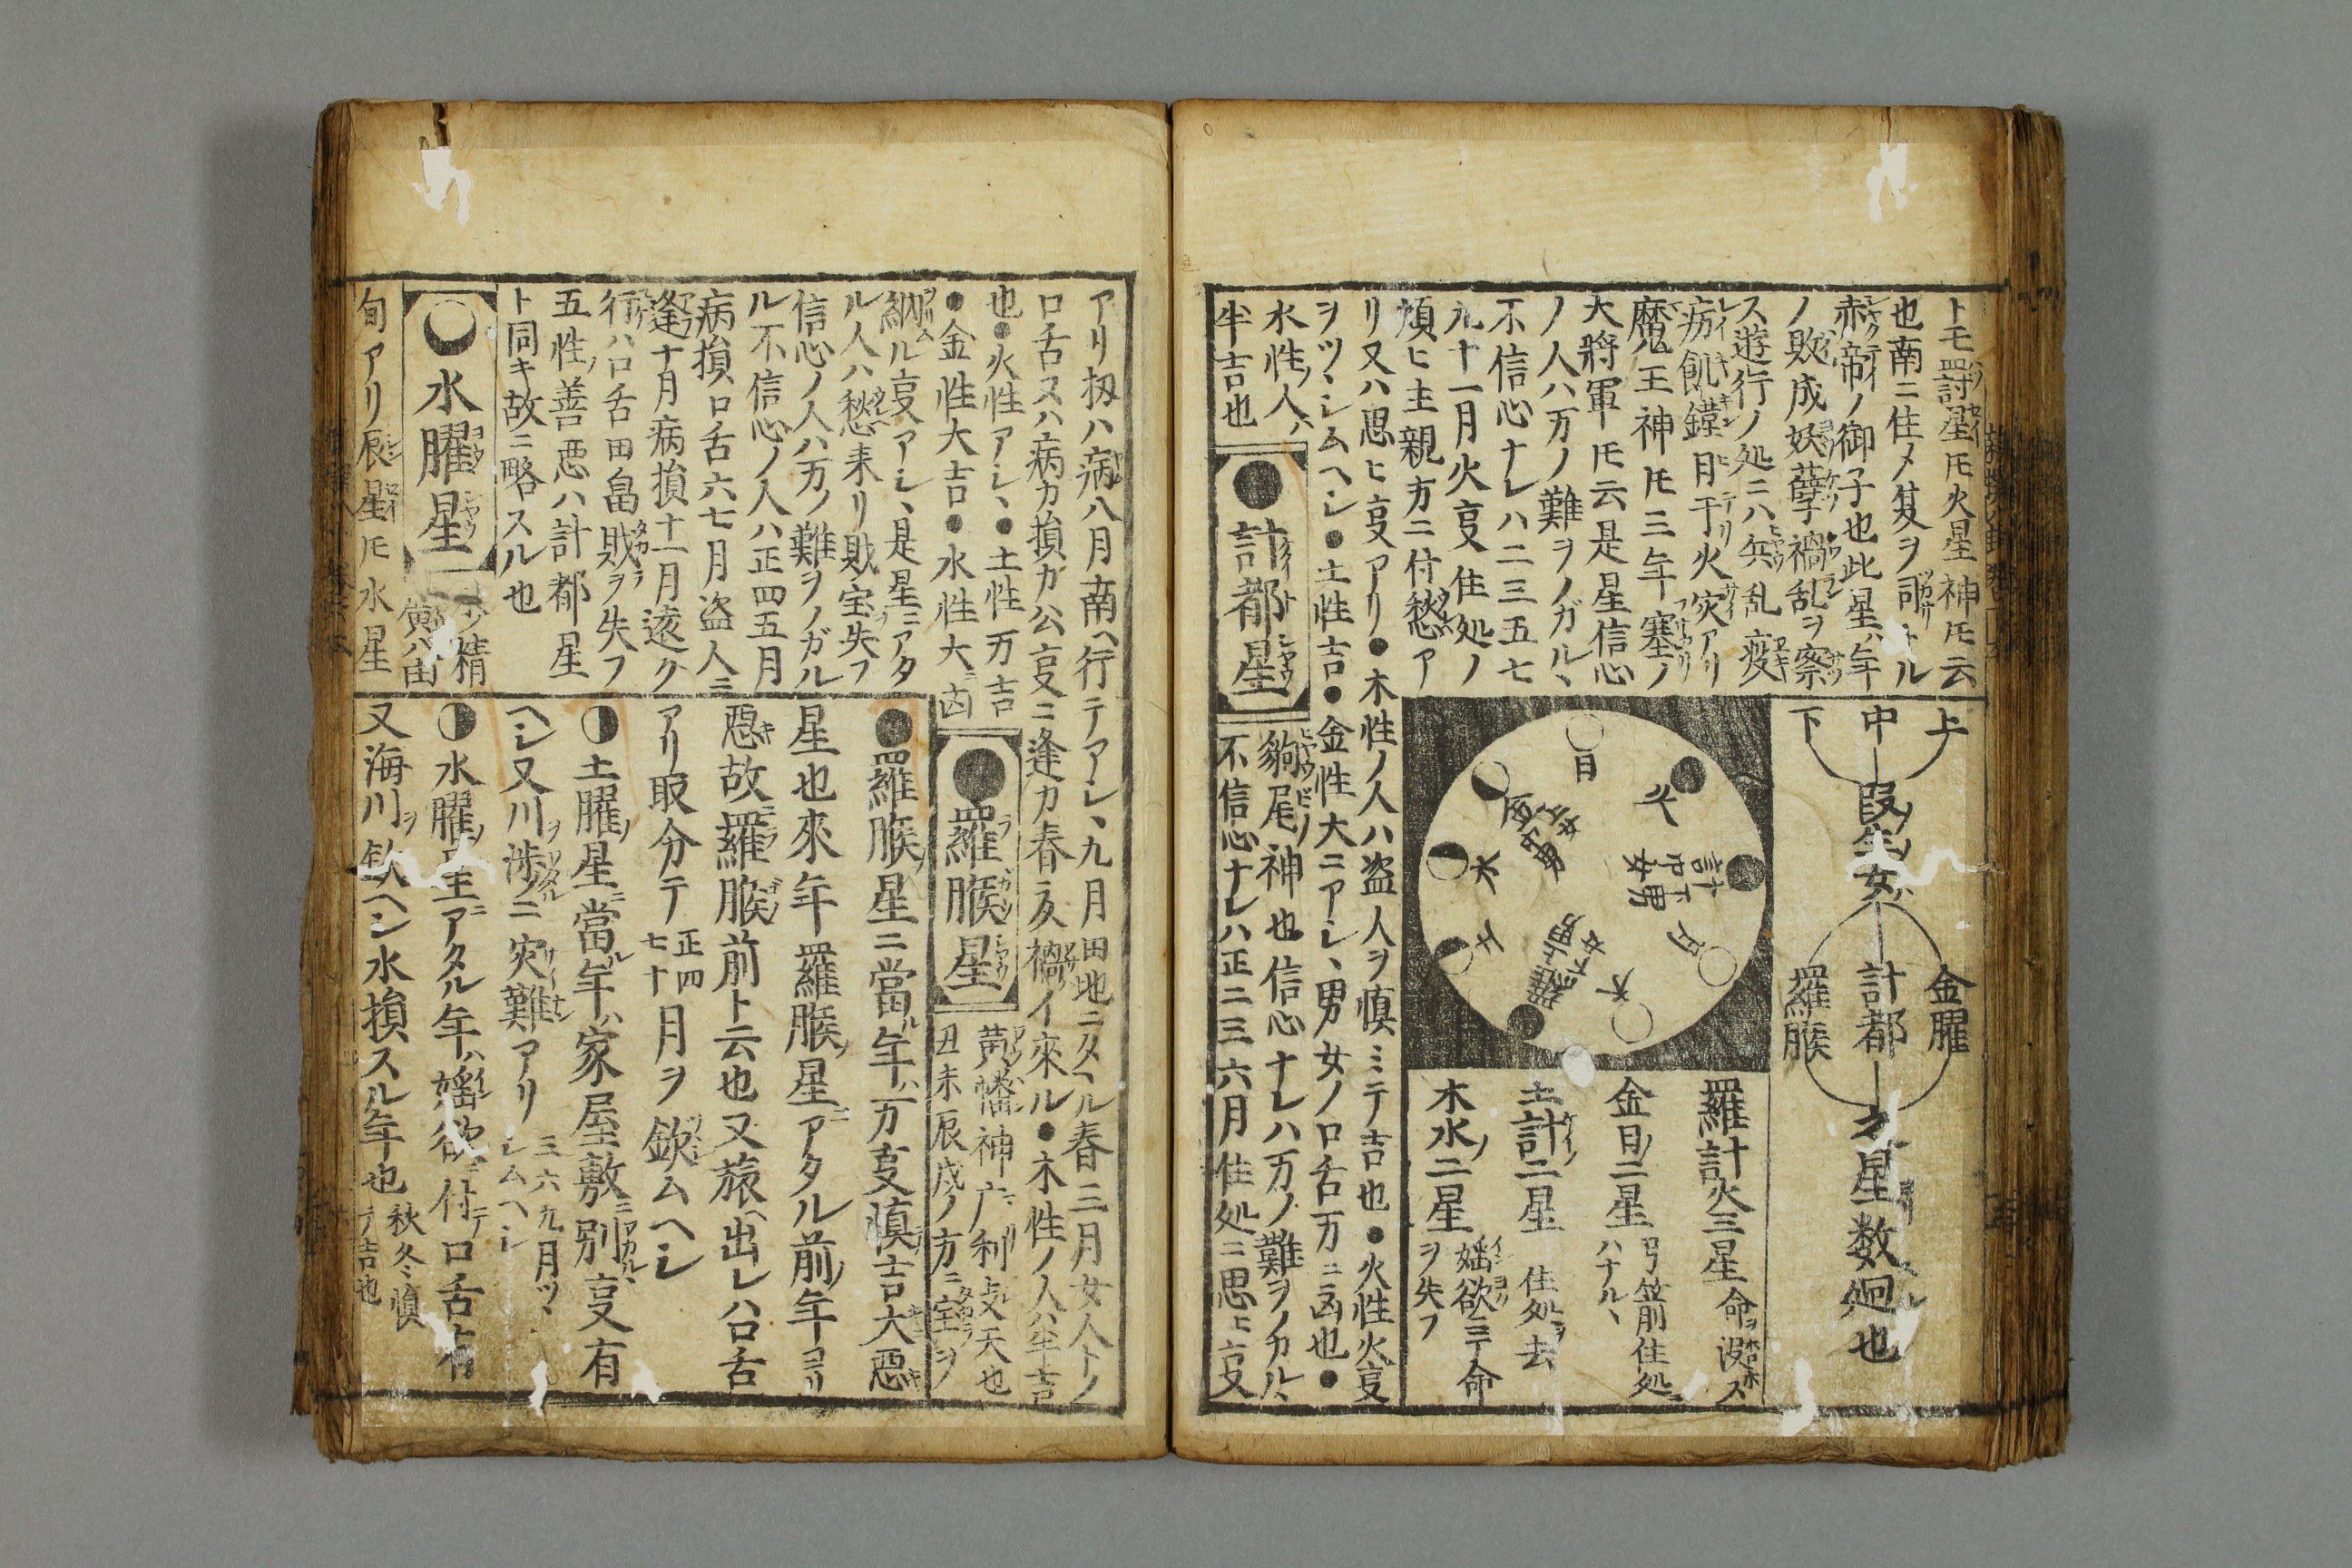 トモ罸星𪜈火星神𪜈云
也南ニ住メ夏ヲ司トル
赤帝ノ御子也此星ハ年
ノ敗成妖孽禍乱ヲ察
ス遊行ノ処ニハ兵乱疫
病飢鐘日干火灾アリ
魔王神𪜈三年塞ノ
大將軍𪜈云是星信心
ノ人ハ万ノ難ヲノガル丶
不信心ナレハ二三五七
九十一月火亊住処ノ
煩ヒ主親方ニ付愁ア
リ又ハ思ヒ亊アリ●木性ノ人ハ盗人ヲ慎ミテ吉也●火性火亊
ヲツ丶シムヘシ●土性吉●金性大ニアシ丶男女ノ口舌万ニ凶也●
水性ノ人ハ
半吉也
上
中
下
段
生
女
金曜
計都
羅睺
才星数廻也
日
火
計
中下
男女
月
木
羅
上下
男女
土
水
金
男女
羅計火三星命ヲ没ス
金日ノ二星弓箭住処ニハナル丶
土計ノ二星住処ヲ去
木水ノ二星婬欲ニテ命ヲ失フ
●計都星
豹尾ノ神也信心ナレハ万ノ難ヲノカル丶
不信心ナレハ正二三六月住処ニ思ヒ亊
アリ扨ハ病八月南ヘ行テアシ丶九月田地ニタヽル春三月女人トノ
口舌又ハ病カ損カ公亊ニ逢カ春夏禍イ來ル●木性ノ人ハ半吉
也●火性アシ丶●土性万吉
●金性大吉●水性大ニ凶
●羅睺星
黄幡神广利支天也
丑未辰戌ノ方ニ宝ヲ
納ル亊アシ丶是星ニアタ
ル人ハ愁来リ財宝失フ
信心ノ人ハ万ノ難ヲノガル
ル不信心ノ人ハ正四五月
病損口舌六七月盗人ニ
逢十月病損十一月遠ク
行ハ口舌田畠財ヲ失フ
五性ノ善悪ハ計都星
ト同キ故ニ略スル也
水曜星
精
旬アリ辰星𪜈水星
●羅睺ノ星ニ當ル年ハ万亊慎テ吉大惡キ
星也來年羅睺ノ星ニアタル前ノ年ヨリ
惡キ故ニ羅睺ノ前ト云也又旅ヘ出レハ口舌
アリ取分テ正四七十月ヲ欽ムヘシ
土曜ノ星ニ當ル年ハ家屋敷ニワカル丶亊有
ヘシ又川ヲ渉ルニ灾難アリ三六九月ツ丶シムヘシ
水曜ノ星ニアタル年ハ婬欲ニ付テ口舌有
又海川ヲ欽ヘシ水損スル年也秋冬慎テ吉也